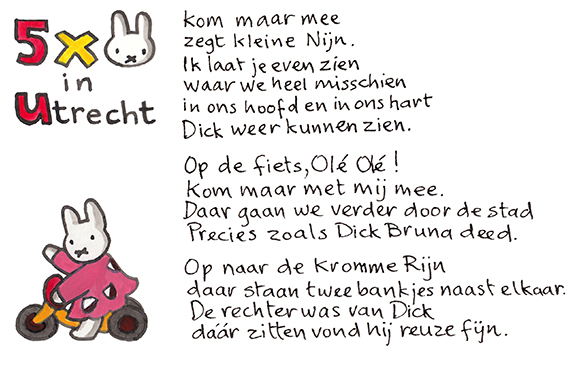 5x
in
Utrecht
kom maar mee
zegt kleine Nijn.
Ik laat je even zien
waar we heel misschien
in ons hoofd en in ons hart
Dick weer kunnen zien.
Op de fiets, Olé Olé!
Kom maar met mij mee.
Daar gaan we verder door de stad
Precies zoals Dick Bruna deed.
Op naar de Kromme Rijn
daar staan twee bankjes naast elkaar.
De rechter was van Dick
dáár zitten vond hij reuze fijn.